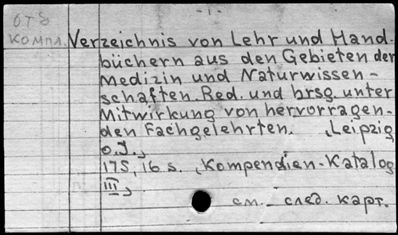 - 1 -
ОТ8
КОМПЛ. Verzeichnis von Lehr und Hand-
büchern aus den Gebieten der
Medizin und Naturwissen-
schaften. Red. und hrsg. unter
Mitwirkung von hervorragen-
den Fachgelehrten. Leipzig
o.J.,
175, 16 s. Kompendien-Katalog
III,
см. след. карт.